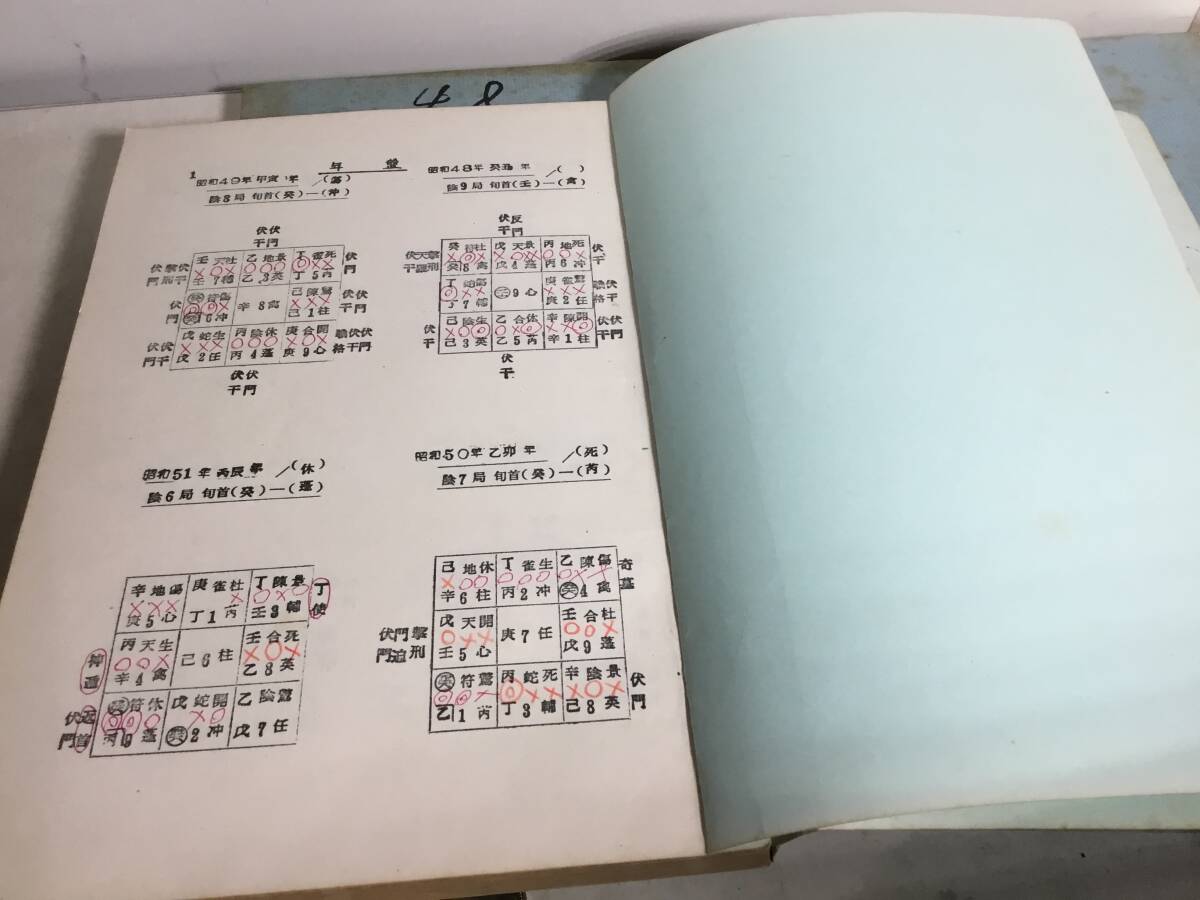 48
1
年 盤
昭和48年 癸丑 年 /( )
陰9局 旬首(壬)—(禽)
伏反
干門
癸 符杜 戊 天景 丙 地死
癸 8 禽 戊 4 蓬 丙 6 冲
伏天撃
伏
干
丁 7 輔
9 心
庚 雀驚
庚 2 任
己 陰生 乙 合休 辛 陳開
己 3 英 乙 5 芮 辛 1 柱
伏
干
伏
干
昭和49年 甲寅 年 /(傷)
陰8局 旬首(癸)—(冲)
伏伏
干門
壬 天杜 乙 地景 丁 雀死
壬 7 輔 乙 3 英 丁 5 芮
伏
門
符傷
6 冲
辛 8 禽
己 陳驚
己 1 柱
伏
門
伏伏
干門
戊 蛇生 丙 陰休 庚 合開
戊 2 任 丙 4 蓬 庚 9 心
伏伏
干門
昭和50年 乙卯 年 /(死)
陰7局 旬首(癸)—(芮)
己 地休 丁 雀生 乙 陳傷
辛 6 柱 丙 2 冲 癸 4 禽
奇
墓
戊 天開
壬 5 心
庚 7 任
壬 合杜
戊 9 蓬
伏門撃
門迫刑
癸 符驚 丙 蛇死 辛 陰景
乙 1 芮 丁 3 輔 己 8 英
伏
門
昭和51年 丙辰 年 /(休)
陰6局 旬首(癸)—(蓬)
辛 地傷 庚 雀杜 丁 陳景
癸 5 心 丁 1 芮 壬 3 輔
丁
使
丙 天生
辛 4 禽
己 6 柱
壬 合死
乙 8 英
神
遁
癸 符休 戊 蛇開 乙 陰驚
丙 9 蓬 癸 2 冲 戊 7 任
伏
門
首